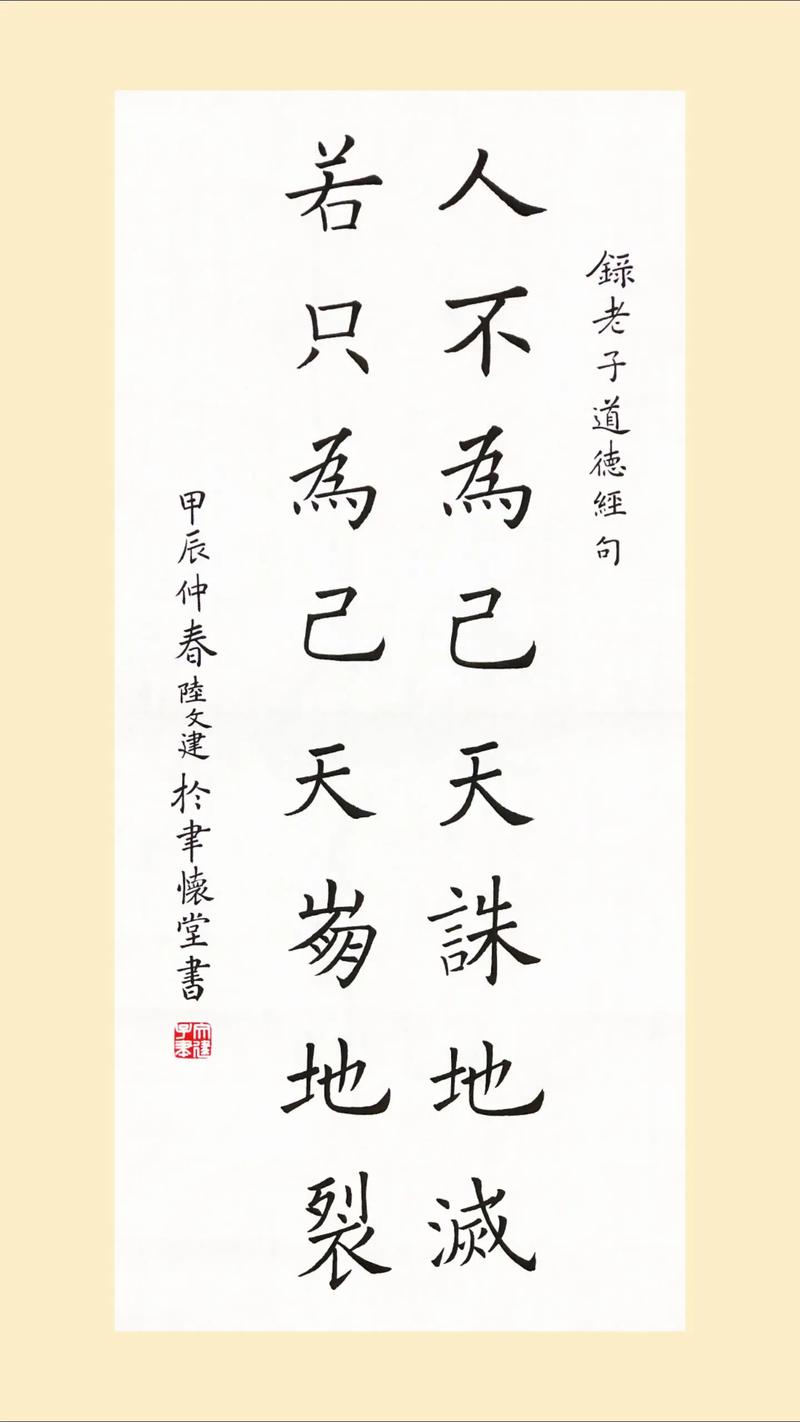 錄老子道德經句
人不為己天誅地滅
若只為己天崩地裂
甲辰仲春陸文建於聿懷堂書